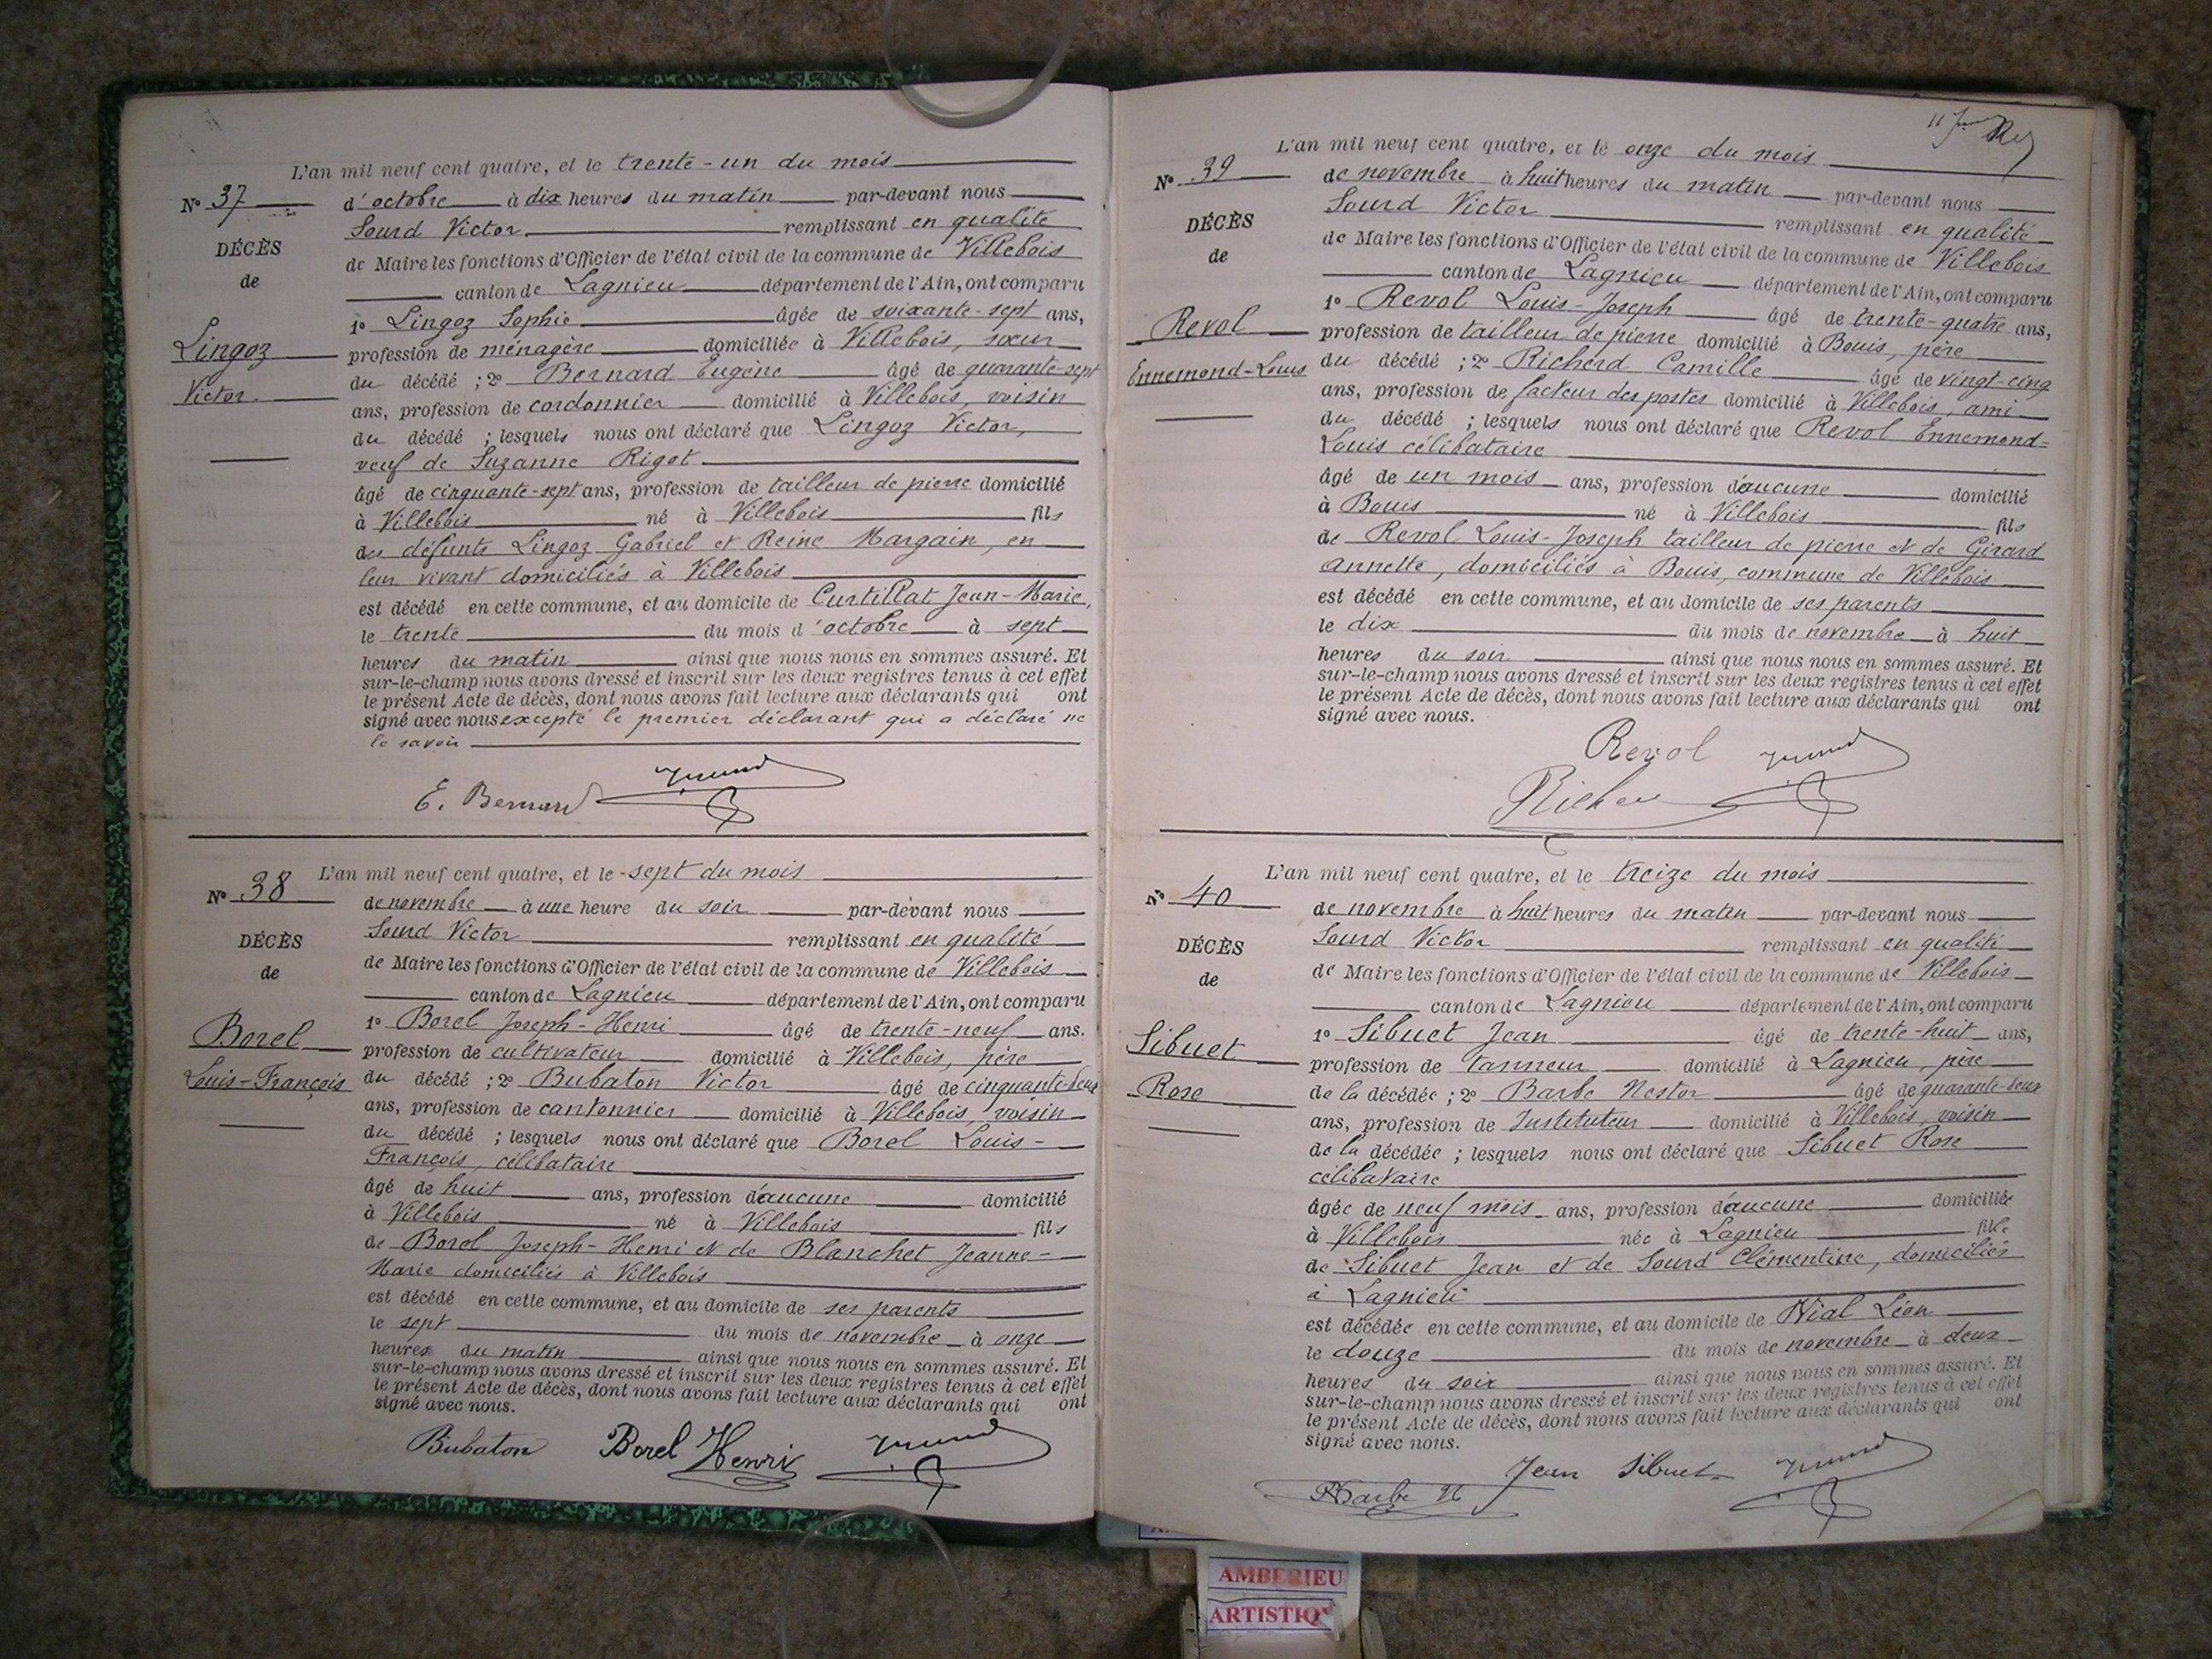 L'an mil neuf cent quatre, et le trente-un du mois
N° 37
d'octobre à dix heures du matin par-devant nous
Sourd Victor remplissant en qualité
DÉCÈS
de Maire les fonctions d'Officier de l'état civil de la commune de Villebois
de
canton de Lagnieu département de l'Ain, ont comparu
1° Lingoz Sophie âgée de soixante-sept ans,
Lingoz
profession de ménagère domiciliée à Villebois, sœur
du décédé ; 2° Bernard Eugène âgé de quarante-sept
Victor
ans, profession de cordonnier domicilié à Villebois, voisin
du décédé ; lesquels nous ont déclaré que Lingoz Victor,
veuf de Suzanne Rigot
âgé de cinquante-sept ans, profession de tailleur de pierre domicilié
à Villebois né à Villebois fils
des défunts Lingoz Gabriel et Reine Margain, en
leur vivant domiciliés à Villebois
est décédé en cette commune, et au domicile de Curtillat Jean-Marie,
le trente du mois d'octobre à sept
heures du matin ainsi que nous nous en sommes assuré. Et
sur-le-champ nous avons dressé et inscrit sur les deux registres tenus à cet effet
le présent Acte de décès, dont nous avons fait lecture aux déclarants qui ont
signé avec nous excepté le premier déclarant qui a déclaré ne
le savoir
E. Bernard
L'an mil neuf cent quatre, et le sept du mois
N° 38
de novembre à une heure du soir par-devant nous
Sourd Victor remplissant en qualité
DÉCÈS
de Maire les fonctions d'Officier de l'état civil de la commune de Villebois
de
canton de Lagnieu département de l'Ain, ont comparu
1° Borel Joseph-Henri âgé de trente-neuf ans.
Borel
profession de cultivateur domicilié à Villebois, père
Louis-François
du décédé ; 2° Bubaton Victor âgé de cinquante-deux
ans, profession de cantonnier domicilié à Villebois, voisin
du décédé ; lesquels nous ont déclaré que Borel Louis-
François, célibataire
âgé de huit ans, profession d'aucune domicilié
à Villebois né à Villebois fils
de Borel Joseph-Henri et de Blanchet Jeanne-
Marie domiciliés à Villebois
est décédé en cette commune, et au domicile de ses parents
le sept du mois de novembre à onze
heures du matin ainsi que nous nous en sommes assuré. Et
sur-le-champ nous avons dressé et inscrit sur les deux registres tenus à cet effet
le présent Acte de décès, dont nous avons fait lecture aux déclarants qui ont
signé avec nous.
Bubaton Borel Henri
L'an mil neuf cent quatre, et le onze du mois
N° 39
de novembre à huit heures du matin par-devant nous
Sourd Victor remplissant en qualité
DÉCÈS
de Maire les fonctions d'Officier de l'état civil de la commune de Villebois
de
canton de Lagnieu département de l'Ain, ont comparu
1° Revol Louis-Joseph âgé de trente-quatre ans,
Revol
profession de tailleur de pierre domicilié à Bouis, père
Ennemond-Louis
du décédé ; 2° Richerd Camille âgé de vingt-cinq
ans, profession de facteur des postes domicilié à Villebois, ami
du décédé ; lesquels nous ont déclaré que Revol Ennemond-
Louis célibataire
âgé de un mois ans, profession d'aucune domicilié
à Bouis né à Villebois fils
de Revol Louis-Joseph tailleur de pierre et de Girard
annette, domiciliés à Bouis, commune de Villebois
est décédé en cette commune, et au domicile de ses parents
le dix du mois de novembre à huit
heures du soir ainsi que nous nous en sommes assuré. Et
sur-le-champ nous avons dressé et inscrit sur les deux registres tenus à cet effet
le présent Acte de décès, dont nous avons fait lecture aux déclarants qui ont
signé avec nous.
Revol
L'an mil neuf cent quatre, et le treize du mois
N° 40
de novembre à huit heures du matin par-devant nous
Sourd Victor remplissant en qualité
DÉCÈS
de Maire les fonctions d'Officier de l'état civil de la commune de Villebois
de
canton de Lagnieu département de l'Ain, ont comparu
1° Sibuet Jean âgé de trente-huit ans,
Sibuet
profession de tanneur domicilié à Lagnieu, père
Rose
de la décédée ; 2° Barbe Nestor âgé de quarante-deux
ans, profession de Instituteur domicilié à Villebois, voisin
de la décédée ; lesquels nous ont déclaré que Sibuet Rose
célibataire
âgée de neuf mois ans, profession d'aucune domiciliée
à Villebois née à Lagnieu fille
de Sibuet Jean et de Sourd Clémentine, domiciliés
à Lagnieu
est décédée en cette commune, et au domicile de Vial Léon
le douze du mois de novembre à deux
heures du soir ainsi que nous nous en sommes assuré. Et
sur-le-champ nous avons dressé et inscrit sur les deux registres tenus à cet effet
le présent Acte de décès, dont nous avons fait lecture aux déclarants qui ont
signé avec nous.
Jean Sibuet
Barbe N
AMBERIEU
ARTISTIQ